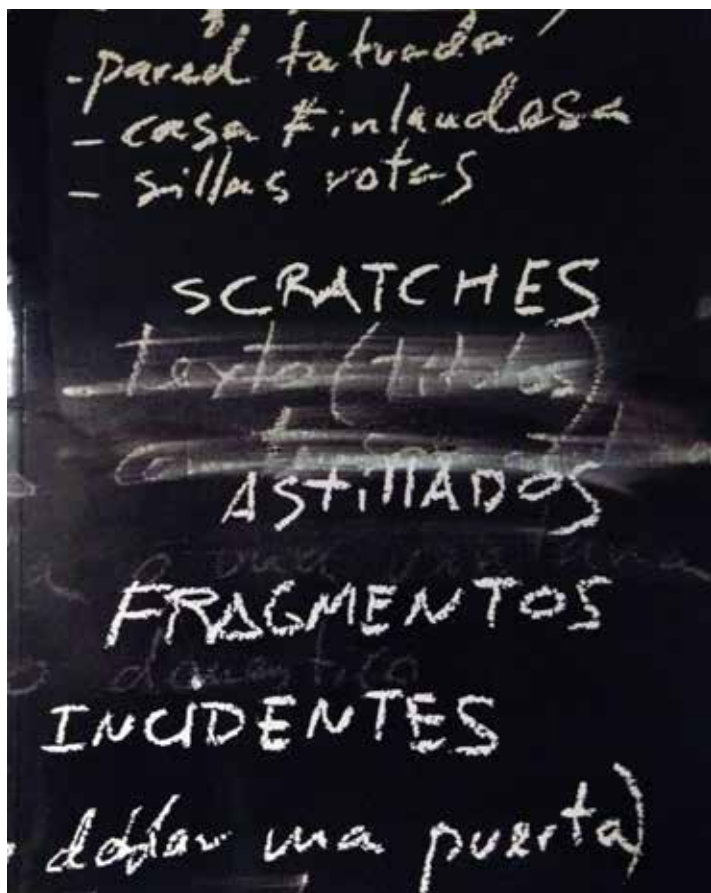 - pared tatuada
- casa finlandesa
- sillas rotas
SCRATCHES
texto (titulos)
ASTILLADOS
FRAGMENTOS
INCIDENTES
doblar una puerta)